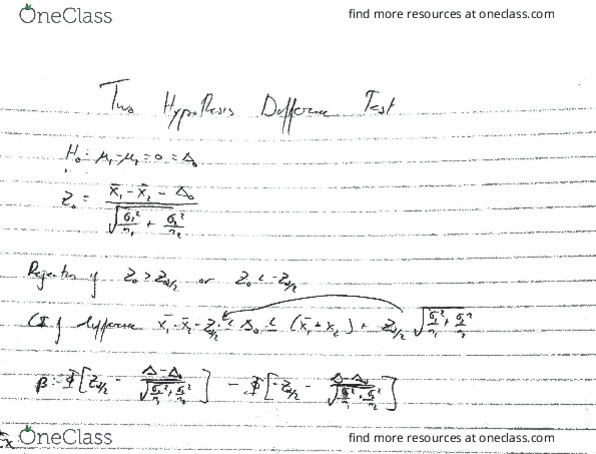 OneClass
find more resources at oneclass.com
Two Hypothesis Difference Test
H₀: μ₁-μ₂=0=Δ₀
Z₀ = (x̄₁-x̄₂-Δ₀) / √(σ₁²/n₁ + σ₂²/n₂)
Rejection if Z₀ > Z_α/2 or Z₀ < -Z_α/2
CI of difference x̄₁-x̄₂-Z_α/2 ≤ Δ₀ ≤ (x̄₁+x̄₂) + Z_α/2 √(σ₁²/n₁ + σ₂²/n₂)
β = Φ[Z_α/2 - (Δ-Δ₀)/√(σ₁²/n₁ + σ₂²/n₂)] - Φ[-Z_α/2 - (Δ-Δ₀)/√(σ₁²/n₁ + σ₂²/n₂)]
OneClass
find more resources at oneclass.com